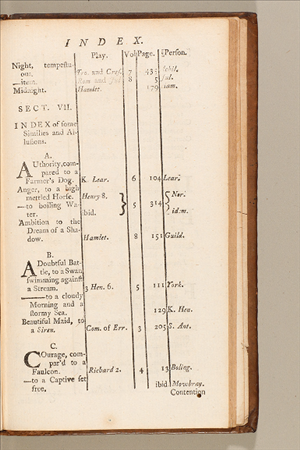 INDEX.
Play. Vol. Page. Person.
Night, tempestu-
ous.
Midnight. Hamlet. 179
SECT. VII.
INDEX of some
Similies and Al-
lusions.
A.
AUthority, com-
pared to a
Farmer's Dog. K. Lear. 6 104 Lear.
Anger, to a high
mettled Horse. Henry 8. 5 314 Nor.
—to boiling Wa-
ter. ibid. idem.
Ambition to the
Dream of a Sha-
dow. Hamlet. 8 151 Guild.
B.
A Doubtful Bat-
tle, to a Swan
swimming against
a Stream. 3 Hen. 6. 5 111 York.
——to a cloudy
Morning and a
stormy Sea. 129 K. Hen.
Beautiful Maid, to
a Siren. Com. of Err. 3 205 S. Ant.
C.
COurage, com-
par'd to a
Faulcon. Richard 2. 4 13 Boling.
—to a Captive set
free. ibid Mowbray.
Contention